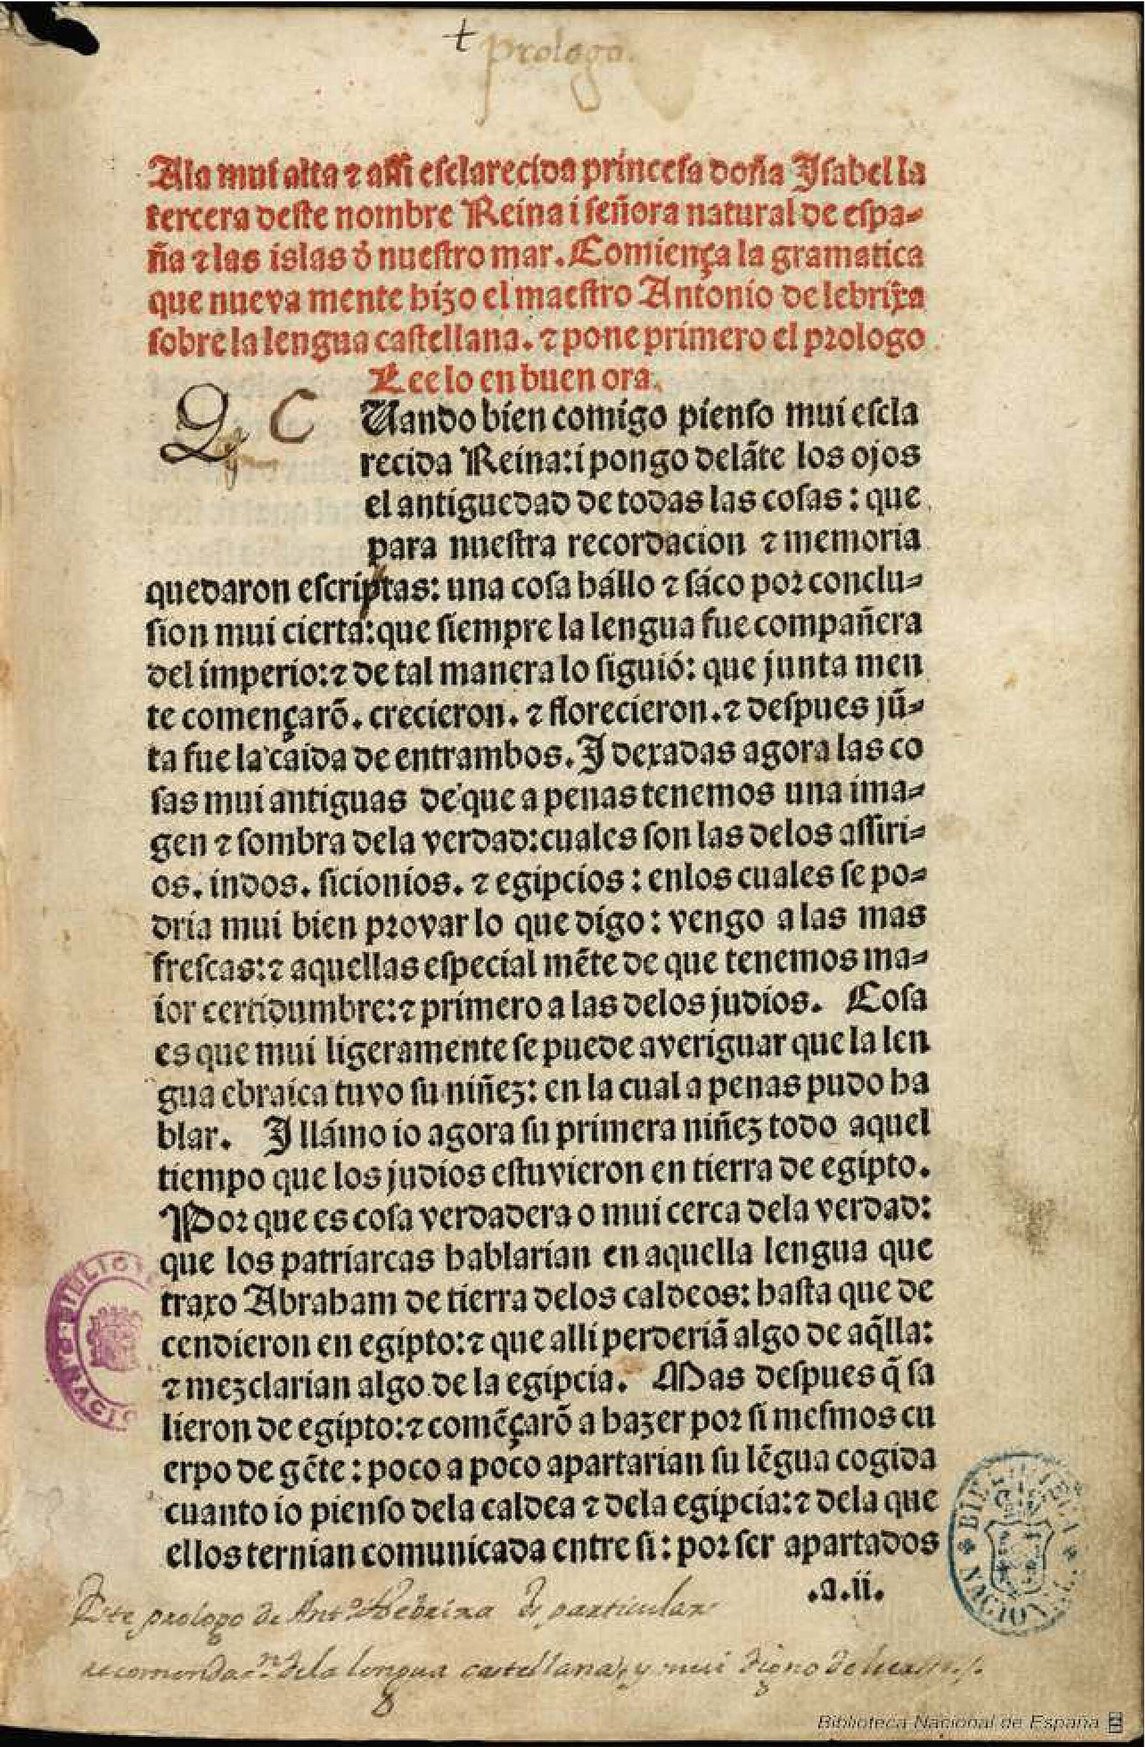 + prologo.
Ala mui alta ⁊ assi esclarecida princesa doña Isabel la
tercera deste nombre Reina i señora natural de espa-
ña ⁊ las islas ð nuestro mar. Comiença la gramatica
que nueva mente hizo el maestro Antonio de lebrixa
sobre la lengua castellana. ⁊ pone primero el prologo
Lee lo en buen ora.
Q C
Uando bien comigo pienso mui escla
recida Reina: i pongo delãte los ojos
el antiguedad de todas las cosas: que
para nuestra recordacion ⁊ memoria
quedaron escriptas: una cosa hállo ⁊ sáco por conclu-
sion mui cierta: que siempre la lengua fue compañera
del imperio: ⁊ de tal manera lo siguió: que junta men
te començarõ. crecieron. ⁊ florecieron. ⁊ despues jũ-
ta fue la caida de entrambos. I dexadas agora las co
sas mui antiguas de que a penas tenemos una ima-
gen ⁊ sombra dela verdad: cuales son las delos assiri-
os. indos. sicionios. ⁊ egipcios: enlos cuales se po-
dria mui bien provar lo que digo: vengo a las mas
frescas: ⁊ aquellas especial mẽte de que tenemos ma-
ior certidumbre: ⁊ primero a las delos judios. Cosa
es que mui ligeramente se puede averiguar que la len
gua ebraica tuvo su niñez: en la cual a penas pudo ha
blar. I llámo io agora su primera niñez todo aquel
tiempo que los judios estuvieron en tierra de egipto.
Por que es cosa verdadera o mui cerca dela verdad:
que los patriarcas hablarian en aquella lengua que
traxo Abraham de tierra delos caldeos: hasta que de
cendieron en egipto: ⁊ que alli perderiã algo de aq̃lla:
⁊ mezclarian algo de la egipcia. Mas despues q̃ sa
lieron de egipto: ⁊ comẽçarõ a hazer por si mesmos cu
erpo de gẽte: poco a poco apartarian su lẽgua cogida
cuanto io pienso dela caldea ⁊ dela egipcia: ⁊ dela que
ellos ternian comunicada entre si: por ser apartados
.a.ii.
Este prologo de Antº Nebrixa es particular
recomendaon. dela lengua castellana, y mui digno de leerse.
BIBLIOTECA NACIONAL
Biblioteca Nacional de España